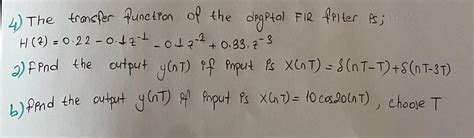 4) The transfer function of the digital FIR filter is;
H(z) = 0.22 - 0.1z⁻¹ - 0.1z⁻² + 0.33.z⁻³
a) Find the output y(nT) if input is x(nT) = δ(nT-T)+δ(nT-3T)
b) find the output y(nT) if input is x(nT) = 10cos20(nT), choose T